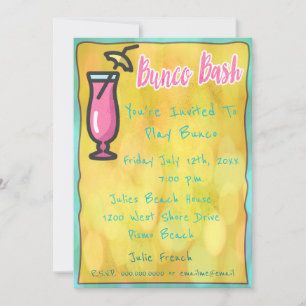 Bunco Bash
You're Invited To
Play Bunco
Friday July 12th, 20XX
7:00 p.m.
Julies Beach House
1200 West Shore Drive
Pismo Beach
Julie French
R.S.V.P. 000.000.0000 or emailme@email